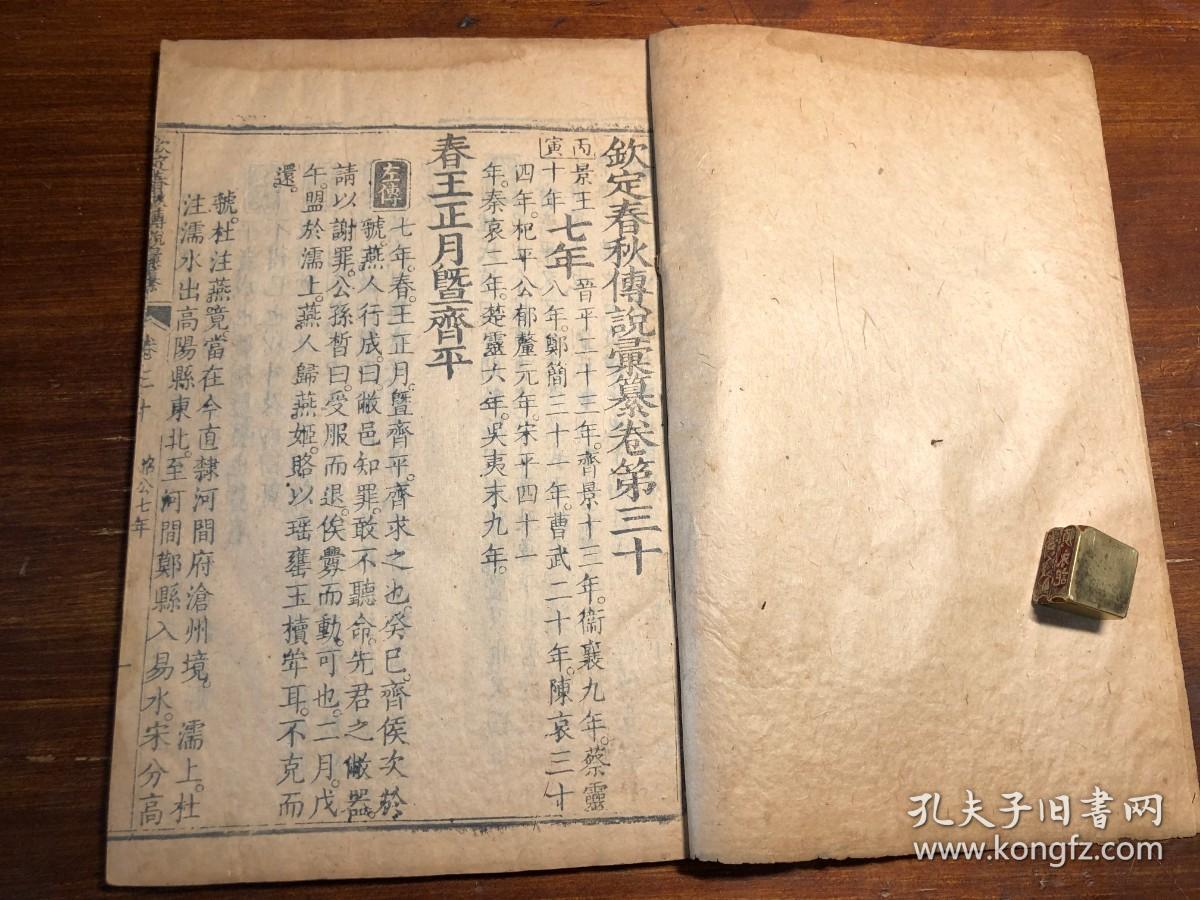 欽定春秋傳說彙纂卷第三十
丙寅
景王十年
七年
晉平二十三年。齊景十三年。衞襄九年。蔡靈
八年。鄭簡二十一年。曹武二十年。陳哀三十
四年。杞平公郁釐元年。宋平四十一
年。秦哀二年。楚靈六年。吳夷末九年。
春王正月曁齊平
左傳
七年。春。王正月。曁齊平。齊求之也。癸巳。齊侯次於
虢。燕人行成。曰敝邑知罪。敢不聽命。先君之敝器。
請以謝罪。公孫晳曰。受服而退。俟釁而動。可也。二月。戊
午。盟於濡上。燕人歸燕姬。賂以瑶罋玉櫝斝耳。不克而
還。
欽定春秋傳說彙纂
卷三十
昭公七年
虢。杜注燕竟。當在今直隸河間府滄州境。 濡上。杜
注濡水出高陽縣東北。至河間鄚縣入易水。宋分高
孔夫子旧书网
www.kongfz.com